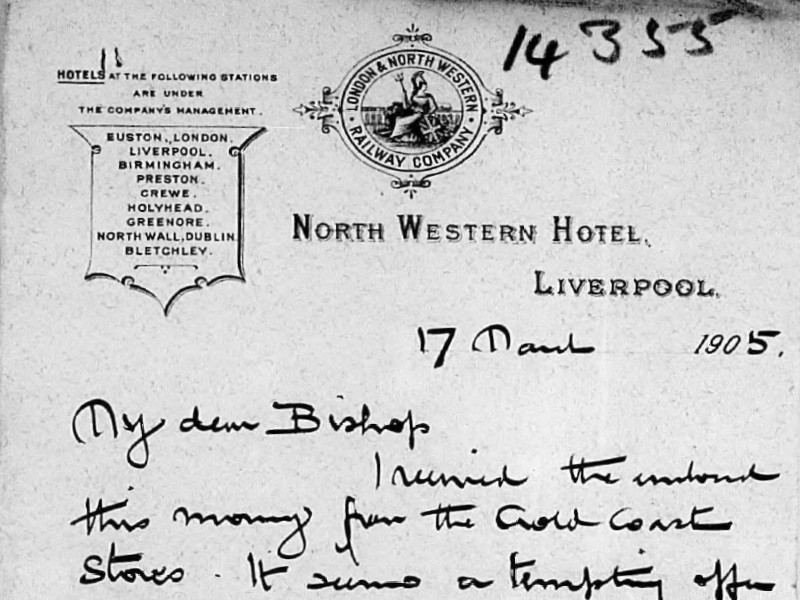 14355
HOTELS AT THE FOLLOWING STATIONS
ARE UNDER
THE COMPANY'S MANAGEMENT.
EUSTON, LONDON.
LIVERPOOL.
BIRMINGHAM.
PRESTON.
CREWE.
HOLYHEAD.
GREENORE.
NORTH WALL, DUBLIN.
BLETCHLEY.
LONDON & NORTH WESTERN
RAILWAY COMPANY
NORTH WESTERN HOTEL,
LIVERPOOL.
17 March 1905.
My dear Bishop
I received the enclosed
this morning from the Gold Coast
Stores. It seems a tempting offer